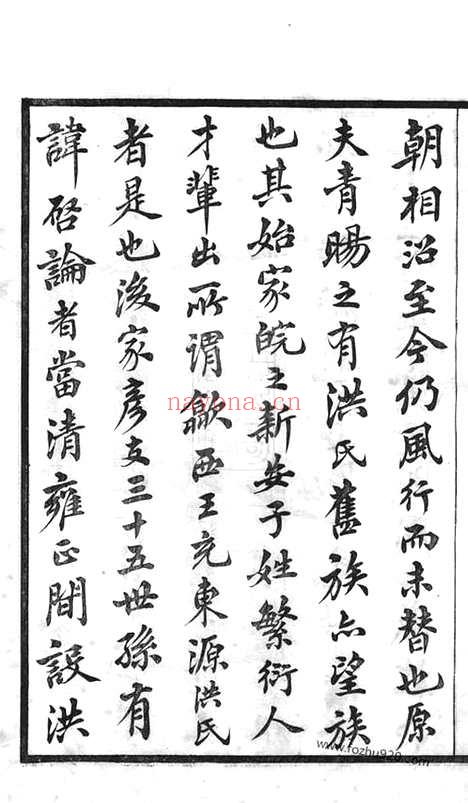 朝相沿至今仍風行而未替也原
夫青暘之有洪氏舊族亦望族
也其始家皖之新安子姓繁衍人
才輩出所謂歙西王充東源洪氏
者是也後家彥支三十五世孫有
諱啓論者當清雍正間設洪
nayona.cn
www.fozhu920.com